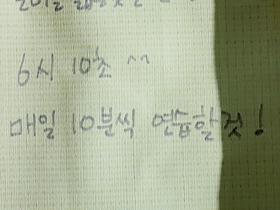 6시 10초 ^^
매일 10분씩 연습할것!